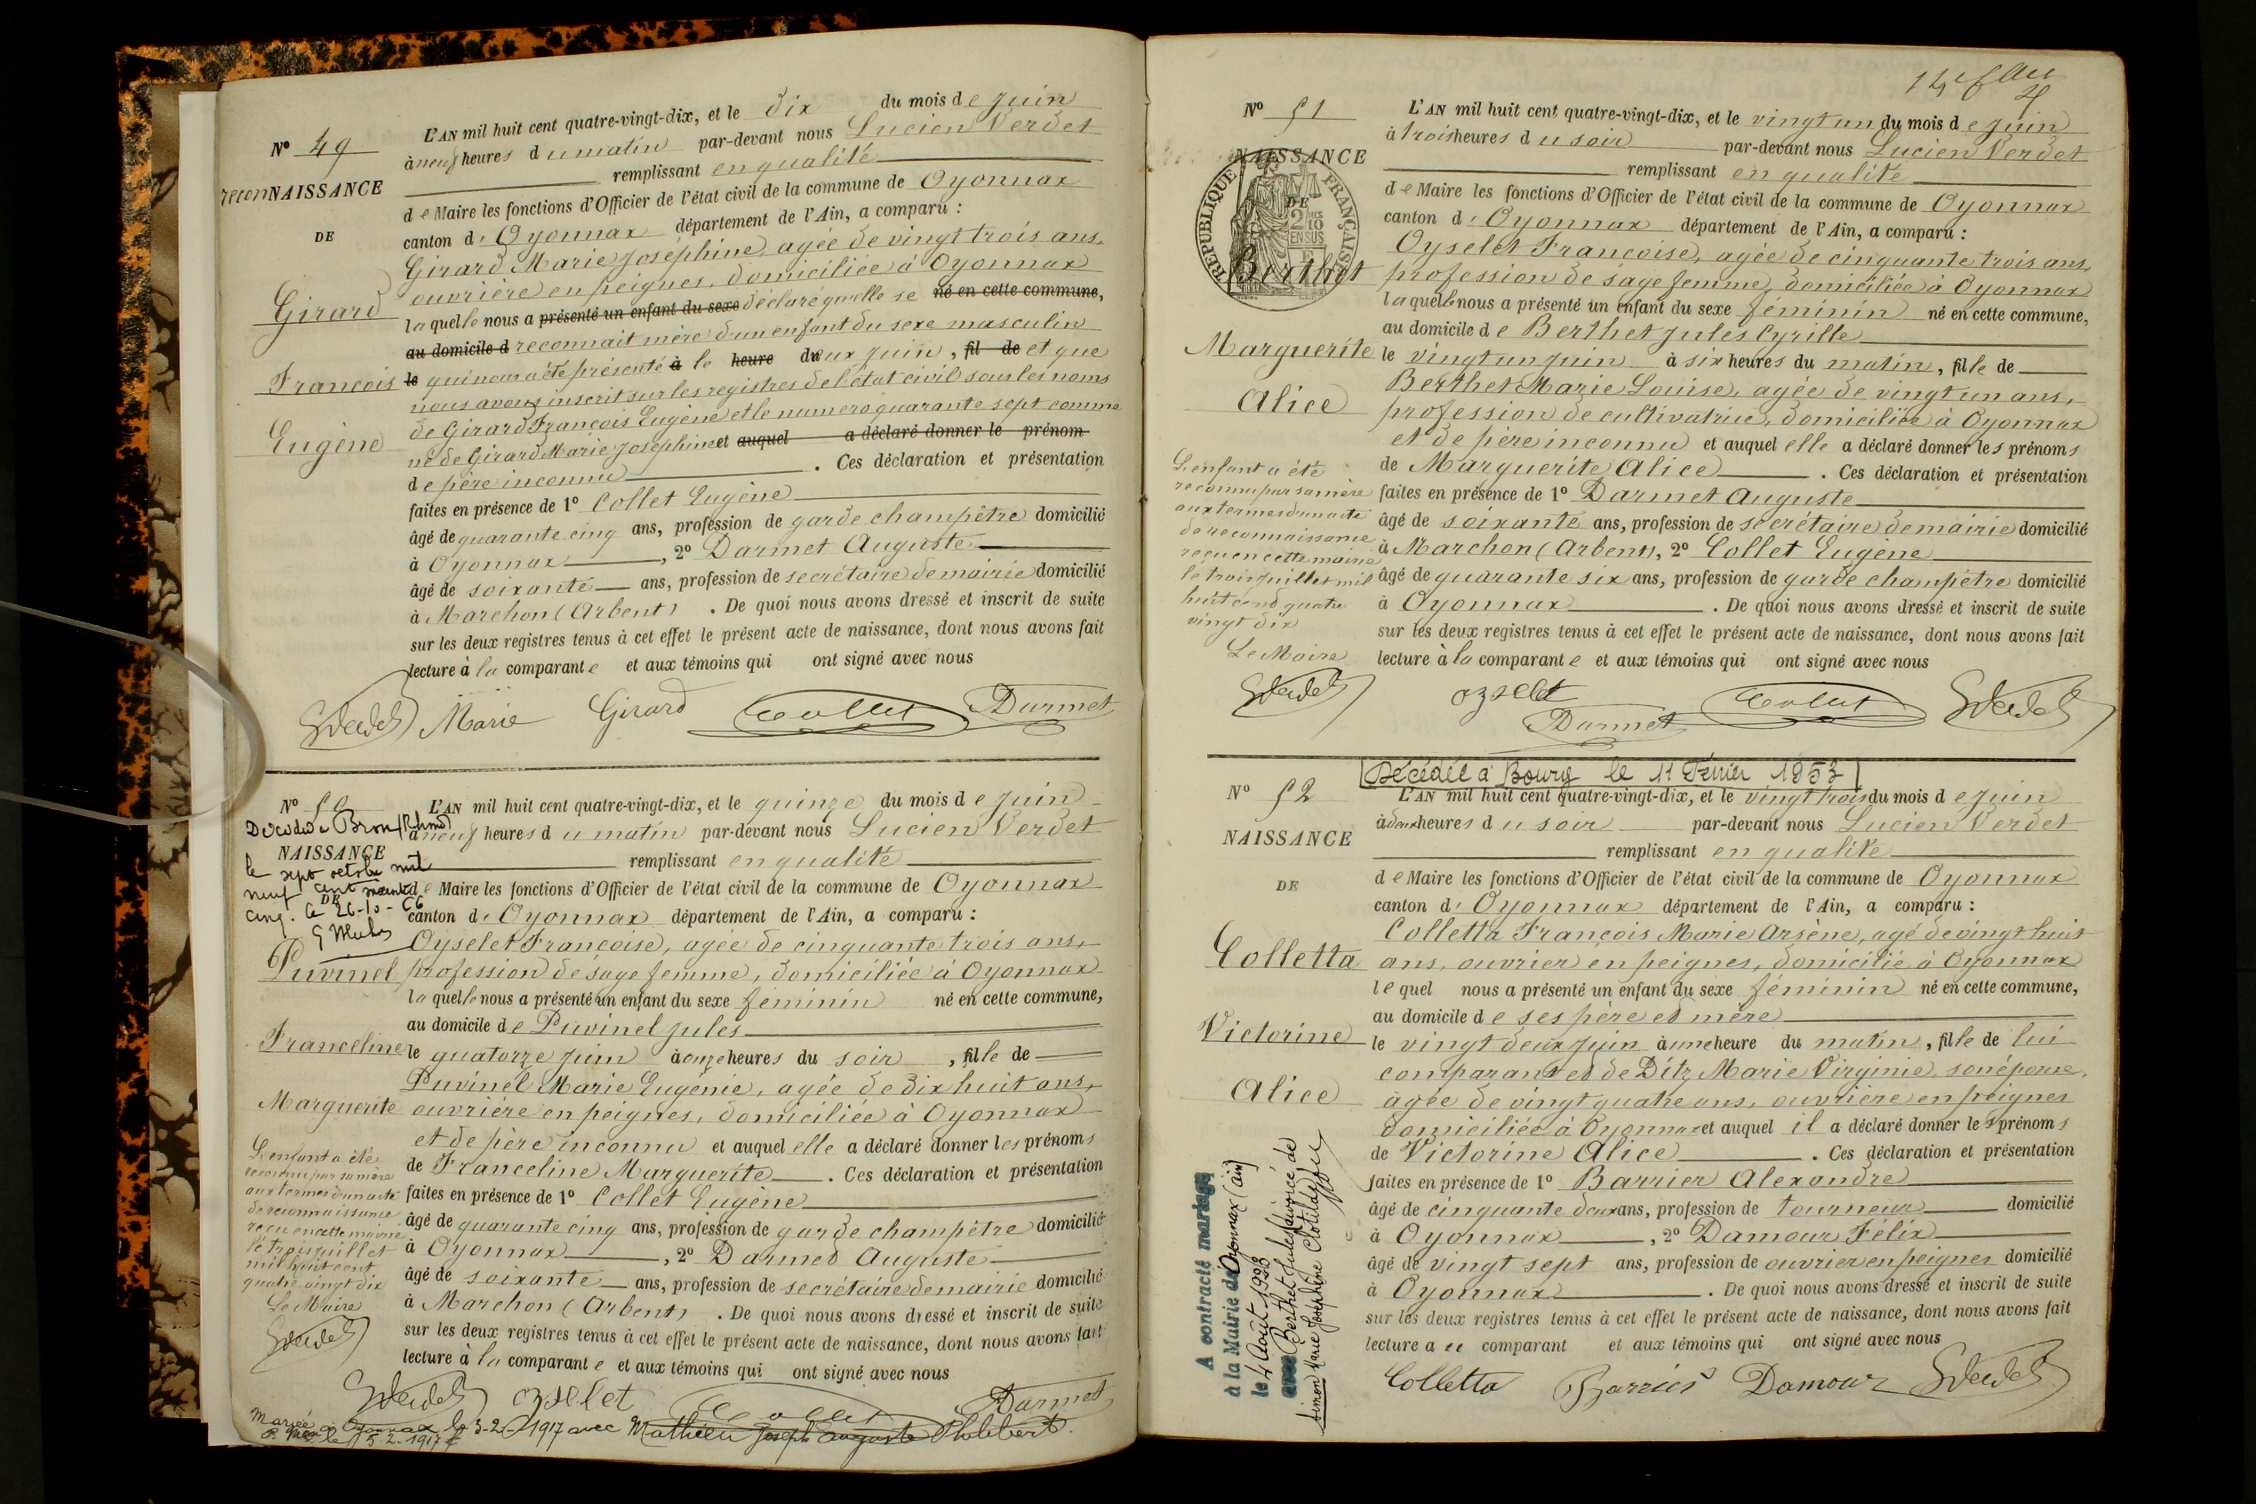 Nº 49
reconNAISSANCE
DE
Girard
François
Eugène
L'AN mil huit cent quatre-vingt-dix, et le dix du mois de juin
à neuf heures du matin par-devant nous Lucien Verdet
remplissant en qualité
de Maire les fonctions d'Officier de l'état civil de la commune de Oyonnax
canton d' Oyonnax département de l'Ain, a comparu :
Girard Marie Joséphine, agée de vingt trois ans,
ouvrière en peignes, domiciliée à Oyonnax
laquelle nous a présenté un enfant du sexe déclaré qu'elle se né en cette commune,
au domicile d reconnait mère d'un enfant du sexe masculin
le qui nous a été présenté à le heure deux juin, fil de et que
nous avons inscrit sur les registres de l'état civil sous les noms
de Girard François Eugène et le numéro quarante sept comme
né de Girard Marie Joséphine et auquel a déclaré donner le prénom
de père inconnu . Ces déclaration et présentation
faites en présence de 1º Collet Eugène
âgé de quarante cinq ans, profession de garde champêtre domicilié
à Oyonnax , 2º Darmet Auguste
âgé de soixante ans, profession de secrétaire de mairie domicilié
à Marchon (Arbent) . De quoi nous avons dressé et inscrit de suite
sur les deux registres tenus à cet effet le présent acte de naissance, dont nous avons fait
lecture à la comparante et aux témoins qui ont signé avec nous
LVerdet Marie Girard Collet Darmet
Nº 50
Décédée à Bron (Rhône)
NAISSANCE
le sept octobre mil
neuf cent soixante
DE
cinq. Le 26-10-66
Puvinel
Franceline
Marguerite
L'enfant a été
reconnu par sa mère
aux termes d'un acte
de reconnaissance
reçu en cette mairie
le trois juillet
mil huit cent
quatre vingt dix
Le Maire
LVerdet
L'AN mil huit cent quatre-vingt-dix, et le quinze du mois de juin
à neuf heures du matin par-devant nous Lucien Verdet
remplissant en qualité
de Maire les fonctions d'Officier de l'état civil de la commune de Oyonnax
canton d' Oyonnax département de l'Ain, a comparu :
Oyselet Françoise, agée de cinquante trois ans,
profession de sage femme, domiciliée à Oyonnax
laquelle nous a présenté un enfant du sexe féminin né en cette commune,
au domicile de Puvinel Jules
le quatorze juin à onze heures du soir , fille de
Puvinel Marie Eugénie, agée de dix huit ans,
ouvrière en peignes, domiciliée à Oyonnax
et de père inconnu et auquel elle a déclaré donner les prénoms
de Franceline Marguerite . Ces déclaration et présentation
faites en présence de 1º Collet Eugène
âgé de quarante cinq ans, profession de garde champêtre domicilié
à Oyonnax , 2º Darmet Auguste
âgé de soixante ans, profession de secrétaire de mairie domicilié
à Marchon (Arbent) . De quoi nous avons dressé et inscrit de suite
sur les deux registres tenus à cet effet le présent acte de naissance, dont nous avons fait
lecture à la comparante et aux témoins qui ont signé avec nous
LVerdet oyselet Collet Darmet
Mariée à Oyonnax le 3-2-1917 avec Mathieu Joseph Auguste Philibert.
le 5-2-1917
Nº 51
NAISSANCE
DE
REPUBLIQUE FRANÇAISE
2/10 EN SUS
Berthet
Marguerite
Alice
L'enfant a été
reconnu par sa mère
aux termes d'un acte
de reconnaissance
reçu en cette mairie
le trois juillet mil
huit cent quatre
vingt dix
Le Maire
LVerdet
L'AN mil huit cent quatre-vingt-dix, et le vingt un du mois de juin
à trois heures du soir par-devant nous Lucien Verdet
remplissant en qualité
de Maire les fonctions d'Officier de l'état civil de la commune de Oyonnax
canton d' Oyonnax département de l'Ain, a comparu :
Oyselet Françoise, agée de cinquante trois ans,
profession de sage femme, domiciliée à Oyonnax
laquelle nous a présenté un enfant du sexe féminin né en cette commune,
au domicile de Berthet Jules Cyrille
le vingt un juin à six heures du matin , fille de
Berthet Marie Louise, agée de vingt un ans,
profession de cultivatrice, domiciliée à Oyonnax
et de père inconnu et auquel elle a déclaré donner les prénoms
de Marguerite Alice . Ces déclaration et présentation
faites en présence de 1º Darmet Auguste
âgé de soixante ans, profession de secrétaire de mairie domicilié
à Marchon (Arbent), 2º Collet Eugène
âgé de quarante six ans, profession de garde champêtre domicilié
à Oyonnax . De quoi nous avons dressé et inscrit de suite
sur les deux registres tenus à cet effet le présent acte de naissance, dont nous avons fait
lecture à la comparante et aux témoins qui ont signé avec nous
oyselet Darmet Collet LVerdet
Décédée à Bourg le 11 Février 1953
Nº 52
NAISSANCE
DE
Colletta
Victorine
Alice
A contracté mariage
à la Mairie de Oyonnax (ain)
le 4 Août 1923
avec Berthet Jules divorcé de
Simon Marie Joséphine Clotilde
L'AN mil huit cent quatre-vingt-dix, et le vingt trois du mois de juin
à deux heures du soir par-devant nous Lucien Verdet
remplissant en qualité
de Maire les fonctions d'Officier de l'état civil de la commune de Oyonnax
canton d' Oyonnax département de l'Ain, a comparu :
Colletta François Marie Arsène, agé de vingt huit
ans, ouvrier en peignes, domicilié à Oyonnax
lequel nous a présenté un enfant du sexe féminin né en cette commune,
au domicile de ses père et mère
le vingt deux juin à une heure du matin , fille de lui
comparant et de Ditz Marie Virginie, son épouse,
agée de vingt quatre ans, ouvrière en peignes
domiciliée à Oyonnax et auquel il a déclaré donner les prénoms
de Victorine Alice . Ces déclaration et présentation
faites en présence de 1º Barrier Alexandre
âgé de cinquante deux ans, profession de tourneur domicilié
à Oyonnax , 2º Damour Félix
âgé de vingt sept ans, profession de ouvrier en peignes domicilié
à Oyonnax . De quoi nous avons dressé et inscrit de suite
sur les deux registres tenus à cet effet le présent acte de naissance, dont nous avons fait
lecture a ce comparant et aux témoins qui ont signé avec nous
Colletta Barrier Damour LVerdet